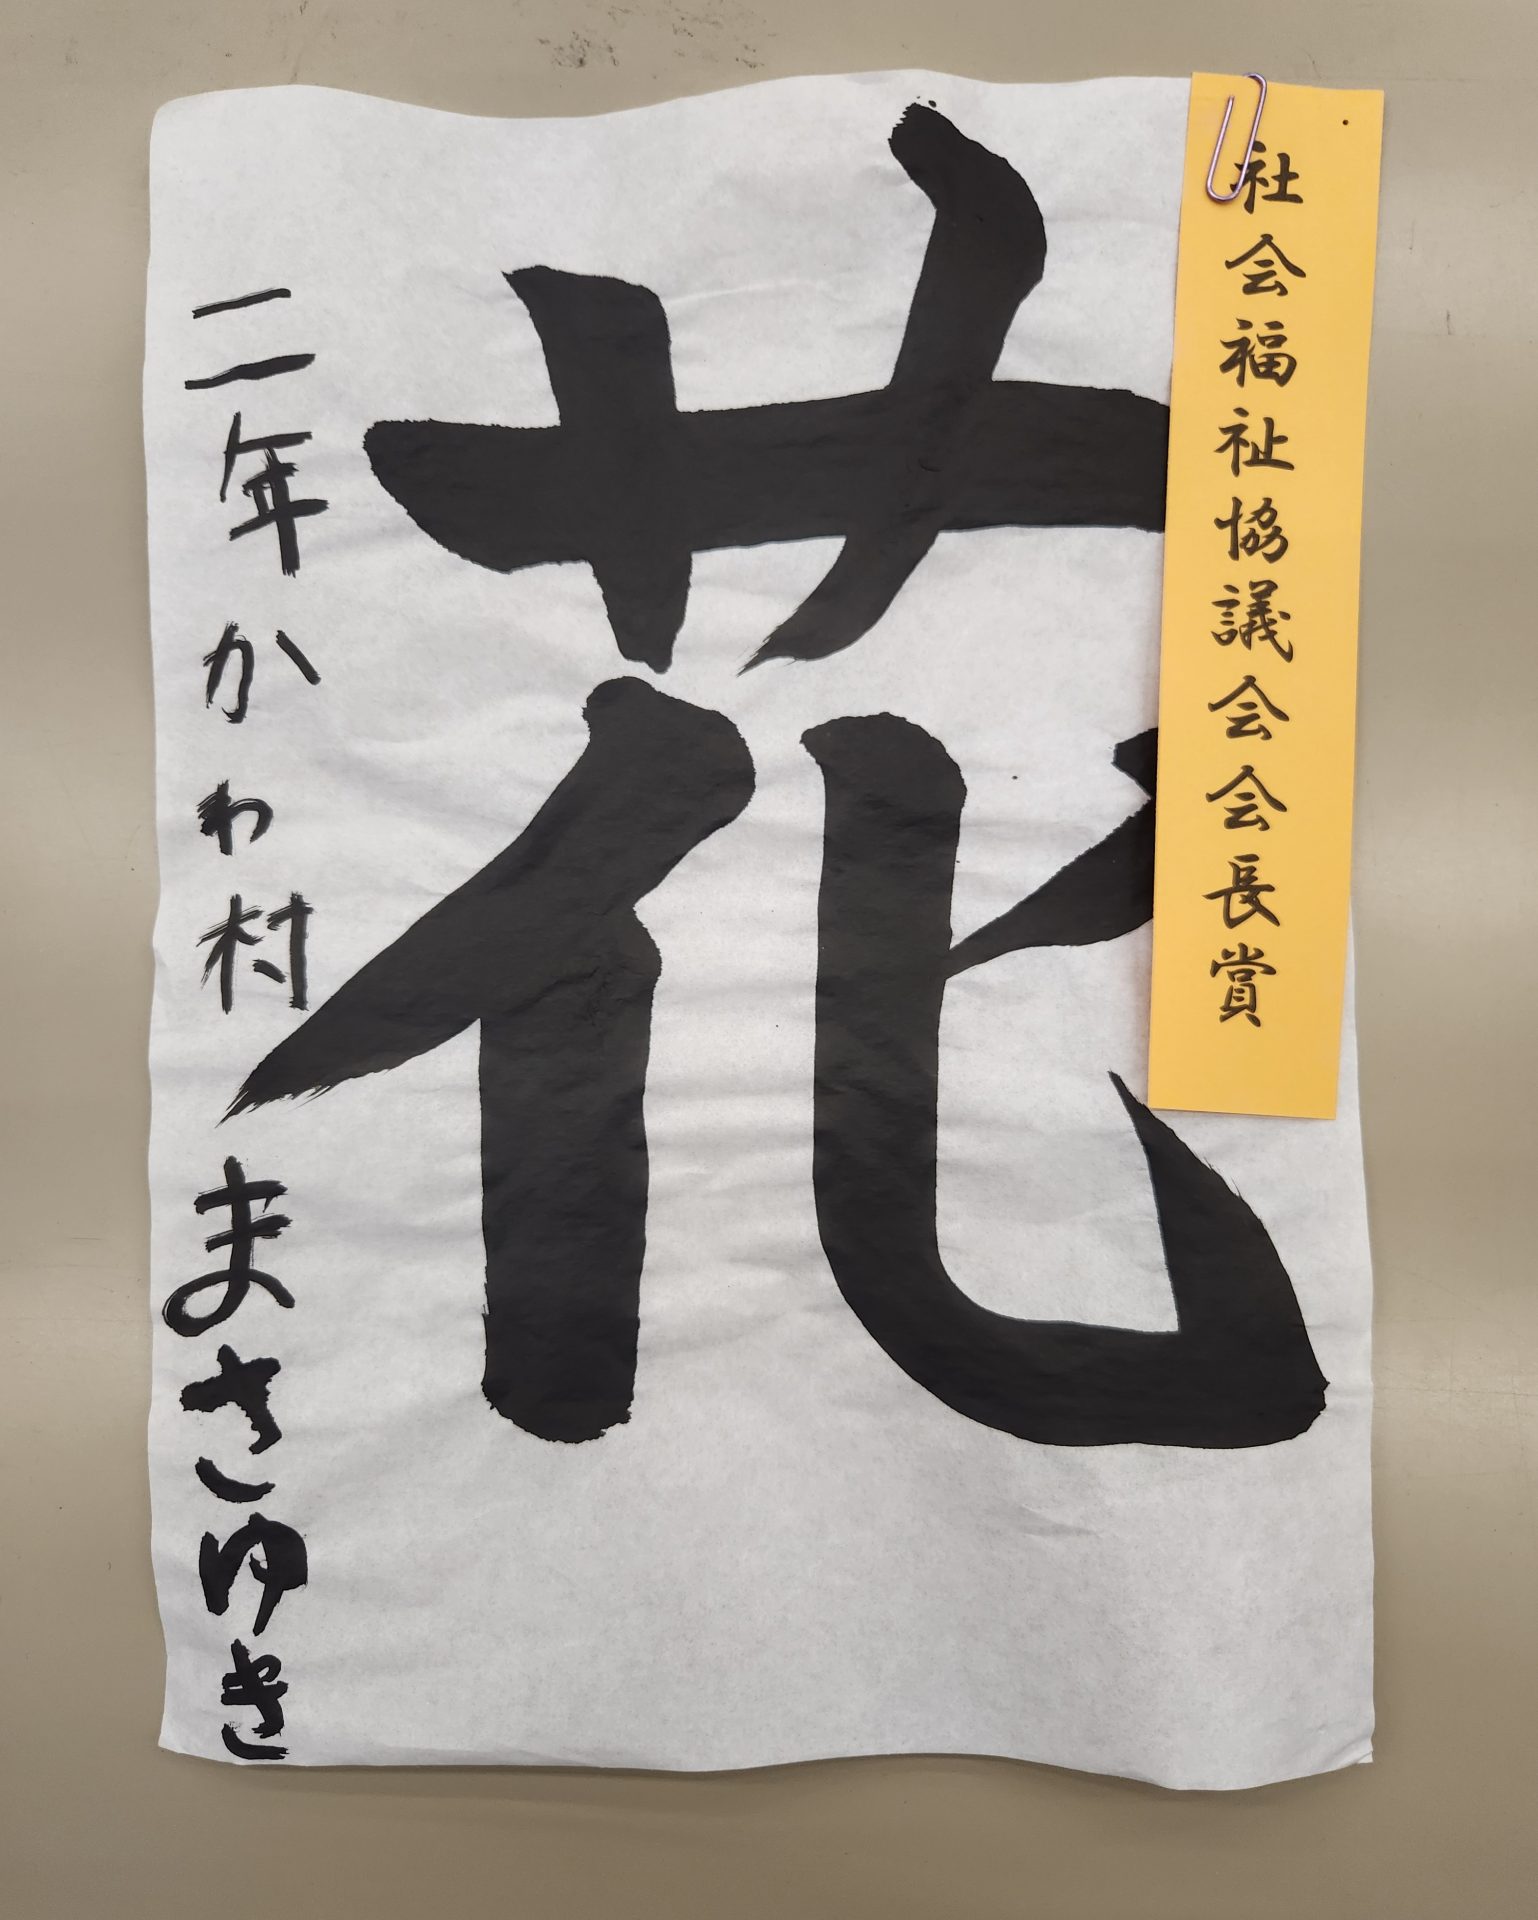 社会福祉協議会会長賞
花
二年かわ村まさゆき